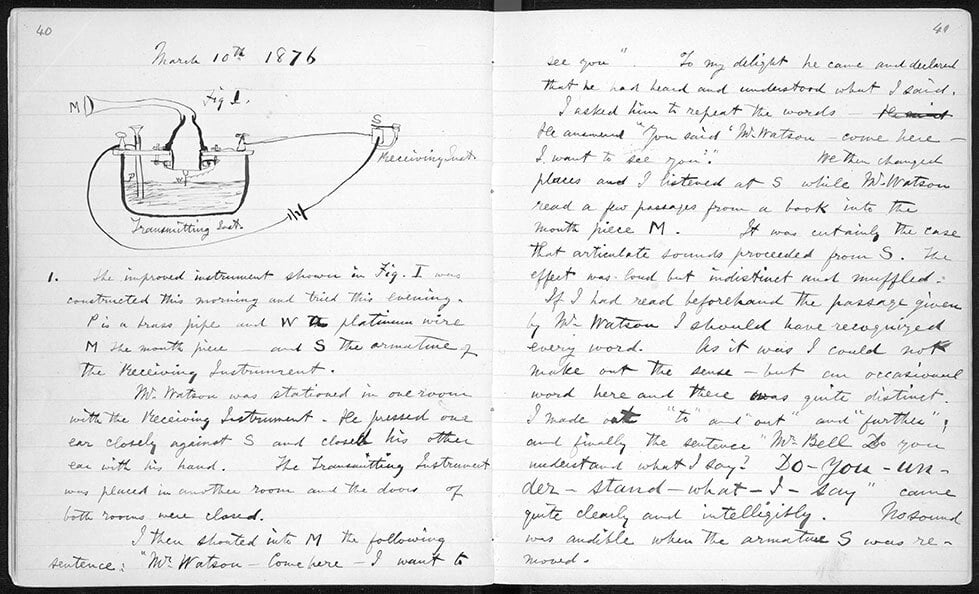 40
March 10th 1876
Fig 1.
M
S
Receiving Inst.
P
W
Transmitting Inst.
1. The improved instrument shown in Fig. I was
constructed this morning and tried this evening.
P is a brass pipe and W the platinum wire
M the mouth piece and S the armature of
the Receiving Instrument.
Mr. Watson was stationed in one room
with the Receiving Instrument. He pressed one
ear closely against S and closed his other
ear with his hand. The Transmitting Instrument
was placed in another room and the doors of
both rooms were closed.
I then shouted into M the following
sentence: "Mr. Watson – Come here – I want to
41
see you". To my delight he came and declared
that he had heard and understood what I said.
I asked him to repeat the words – He said
He answered "You said 'Mr. Watson – come here –
I want to see you'." We then changed
places and I listened at S while Mr. Watson
read a few passages from a book into the
mouth piece M. It was certainly the case
that articulate sounds proceeded from S. The
effect was loud but indistinct and muffled.
If I had read beforehand the passage given
by Mr. Watson I should have recognized
every word. As it was I could not
make out the sense – but an occasional
word here and there was quite distinct.
I made out "to" and "out" and "further";
and finally the sentence "Mr. Bell Do you
understand what I say? Do – you – un –
der – stand – what – I – say" came
quite clearly and intelligibly. No sound
was audible when the armature S was re-
moved.